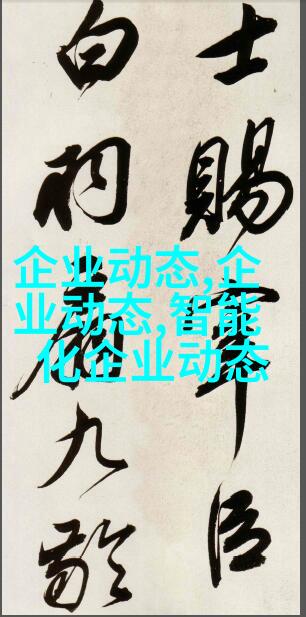 士賜宰臣
白羽扇九齡
企业动态,企
业动态,智能
化企业动态